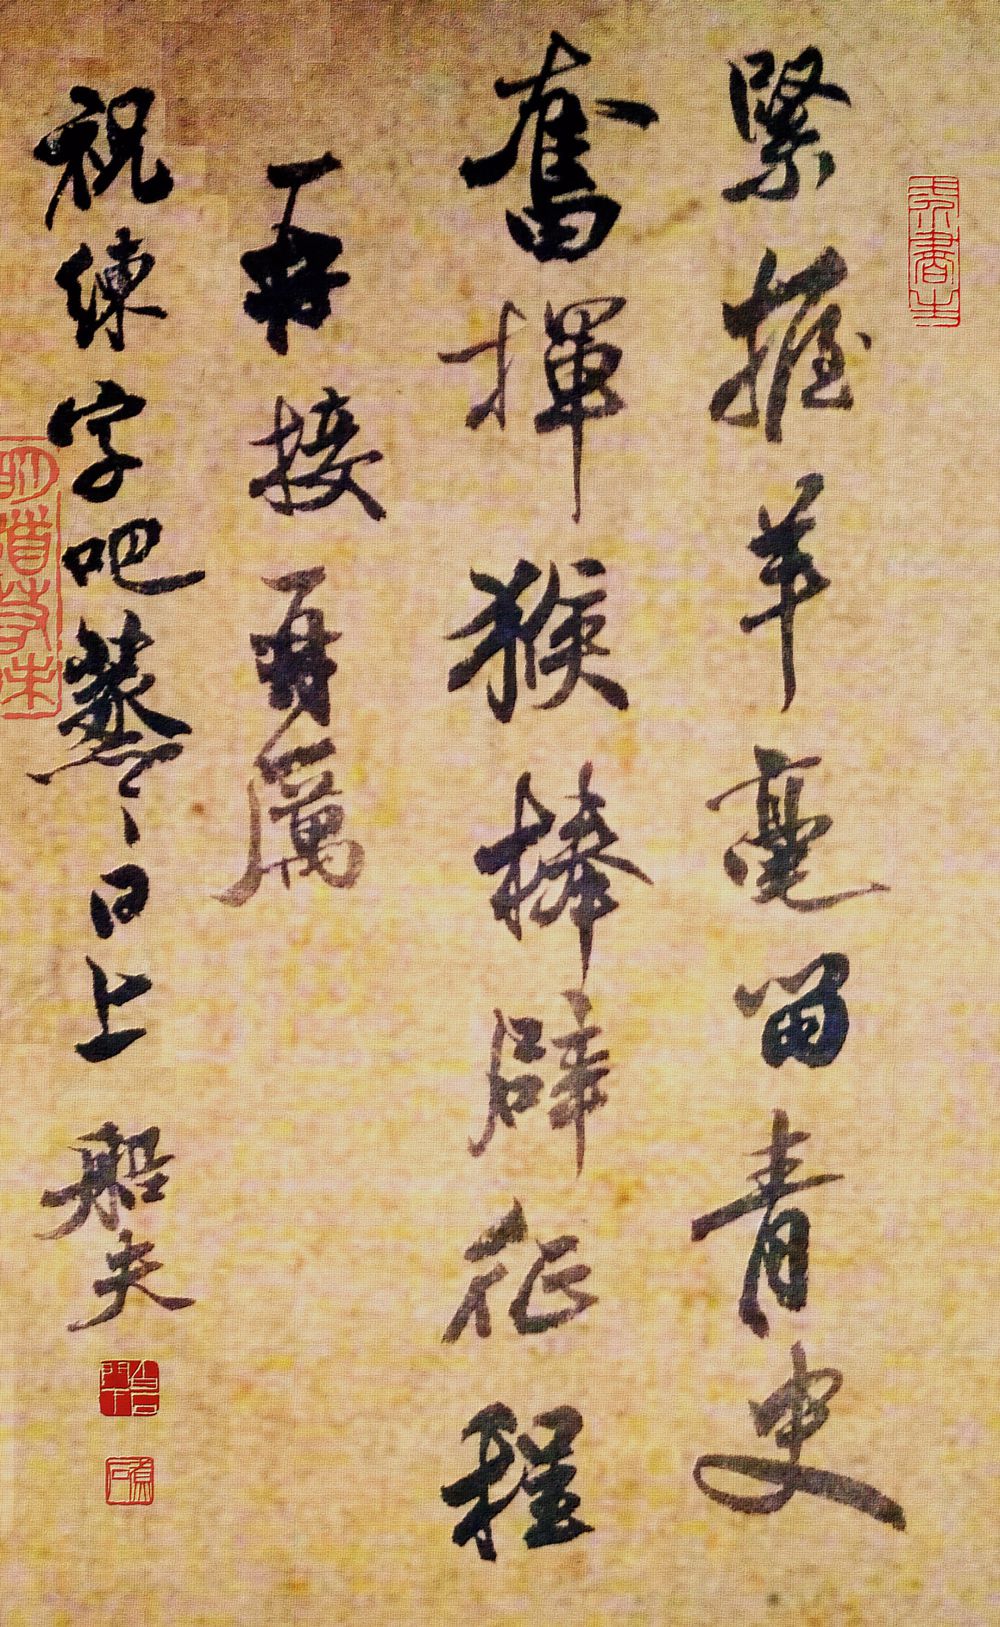 緊握羊毫留青史
奮揮猴棒辟征程
再接再厲
祝練字吧蒸〻日上
船夫